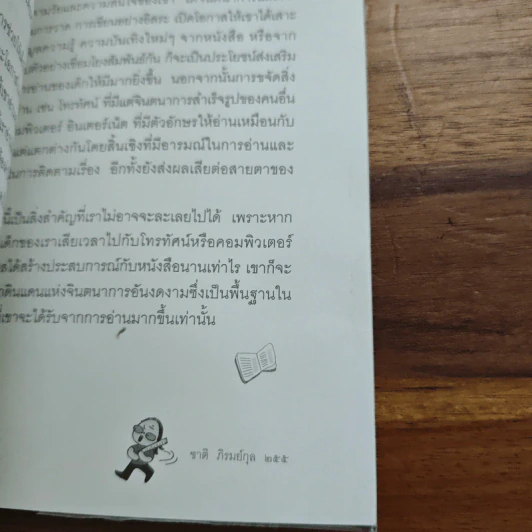 การวาด การเขียนอย่างอิสระ เปิดโอกาสให้เขาได้เสาะ
ความรู้ ความบันเทิงใหม่ๆ จากหนังสือ หรือจาก
ตัวอย่างเชื่อมโยงสัมพันธ์กัน ก็จะเป็นประโยชน์ส่งเสริม
อ่านของเด็กให้มีมากยิ่งขึ้น นอกจากนั้นการขจัดสิ่ง
เช่น โทรทัศน์ ที่มีแต่จินตนาการสำเร็จรูปของคนอื่น
มพิวเตอร์ อินเตอร์เน็ต ที่มีตัวอักษรให้อ่านเหมือนกับ
แต่แตกต่างกันโดยสิ้นเชิงที่มีอารมณ์ในการอ่านและ
นการติดตามเรื่อง อีกทั้งยังส่งผลเสียต่อสายตาของ
นี้เป็นสิ่งสำคัญที่เราไม่อาจจะละเลยไปได้ เพราะหาก
เด็กของเราเสียเวลาไปกับโทรทัศน์หรือคอมพิวเตอร์
ได้สร้างประสบการณ์กับหนังสือนานเท่าไร เขาก็จะ
ดินแดนแห่งจินตนาการอันงดงามซึ่งเป็นพื้นฐานใน
ที่เขาจะได้รับจากการอ่านมากขึ้นเท่านั้น
ชาติ ภิรมย์กุล ๒๕๕